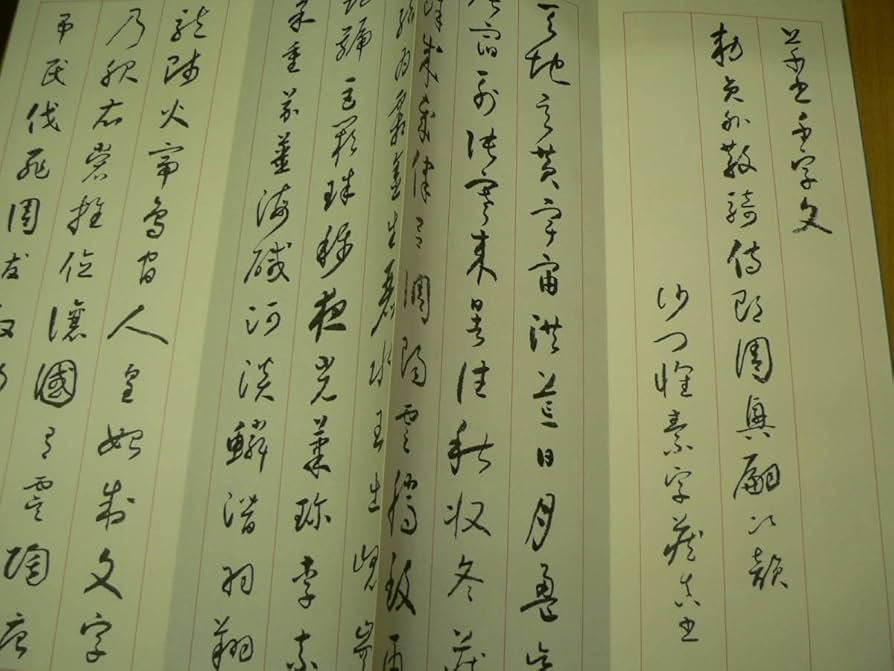 草書千字文
勅員外散騎侍郎周興嗣次韻
沙門懷素字藏真書
天地玄黃宇宙洪荒日月盈昃
辰宿列張寒來暑往秋收冬藏
餘成歲律呂調陽雲騰致雨
結為霜金生麗水玉出崑崗
劍號巨闕珠稱夜光菓珍李柰
菜重芥薑海鹹河淡鱗潛羽翔
龍師火帝鳥官人皇始制文字
乃服衣裳推位讓國有虞陶唐
弔民伐罪周發